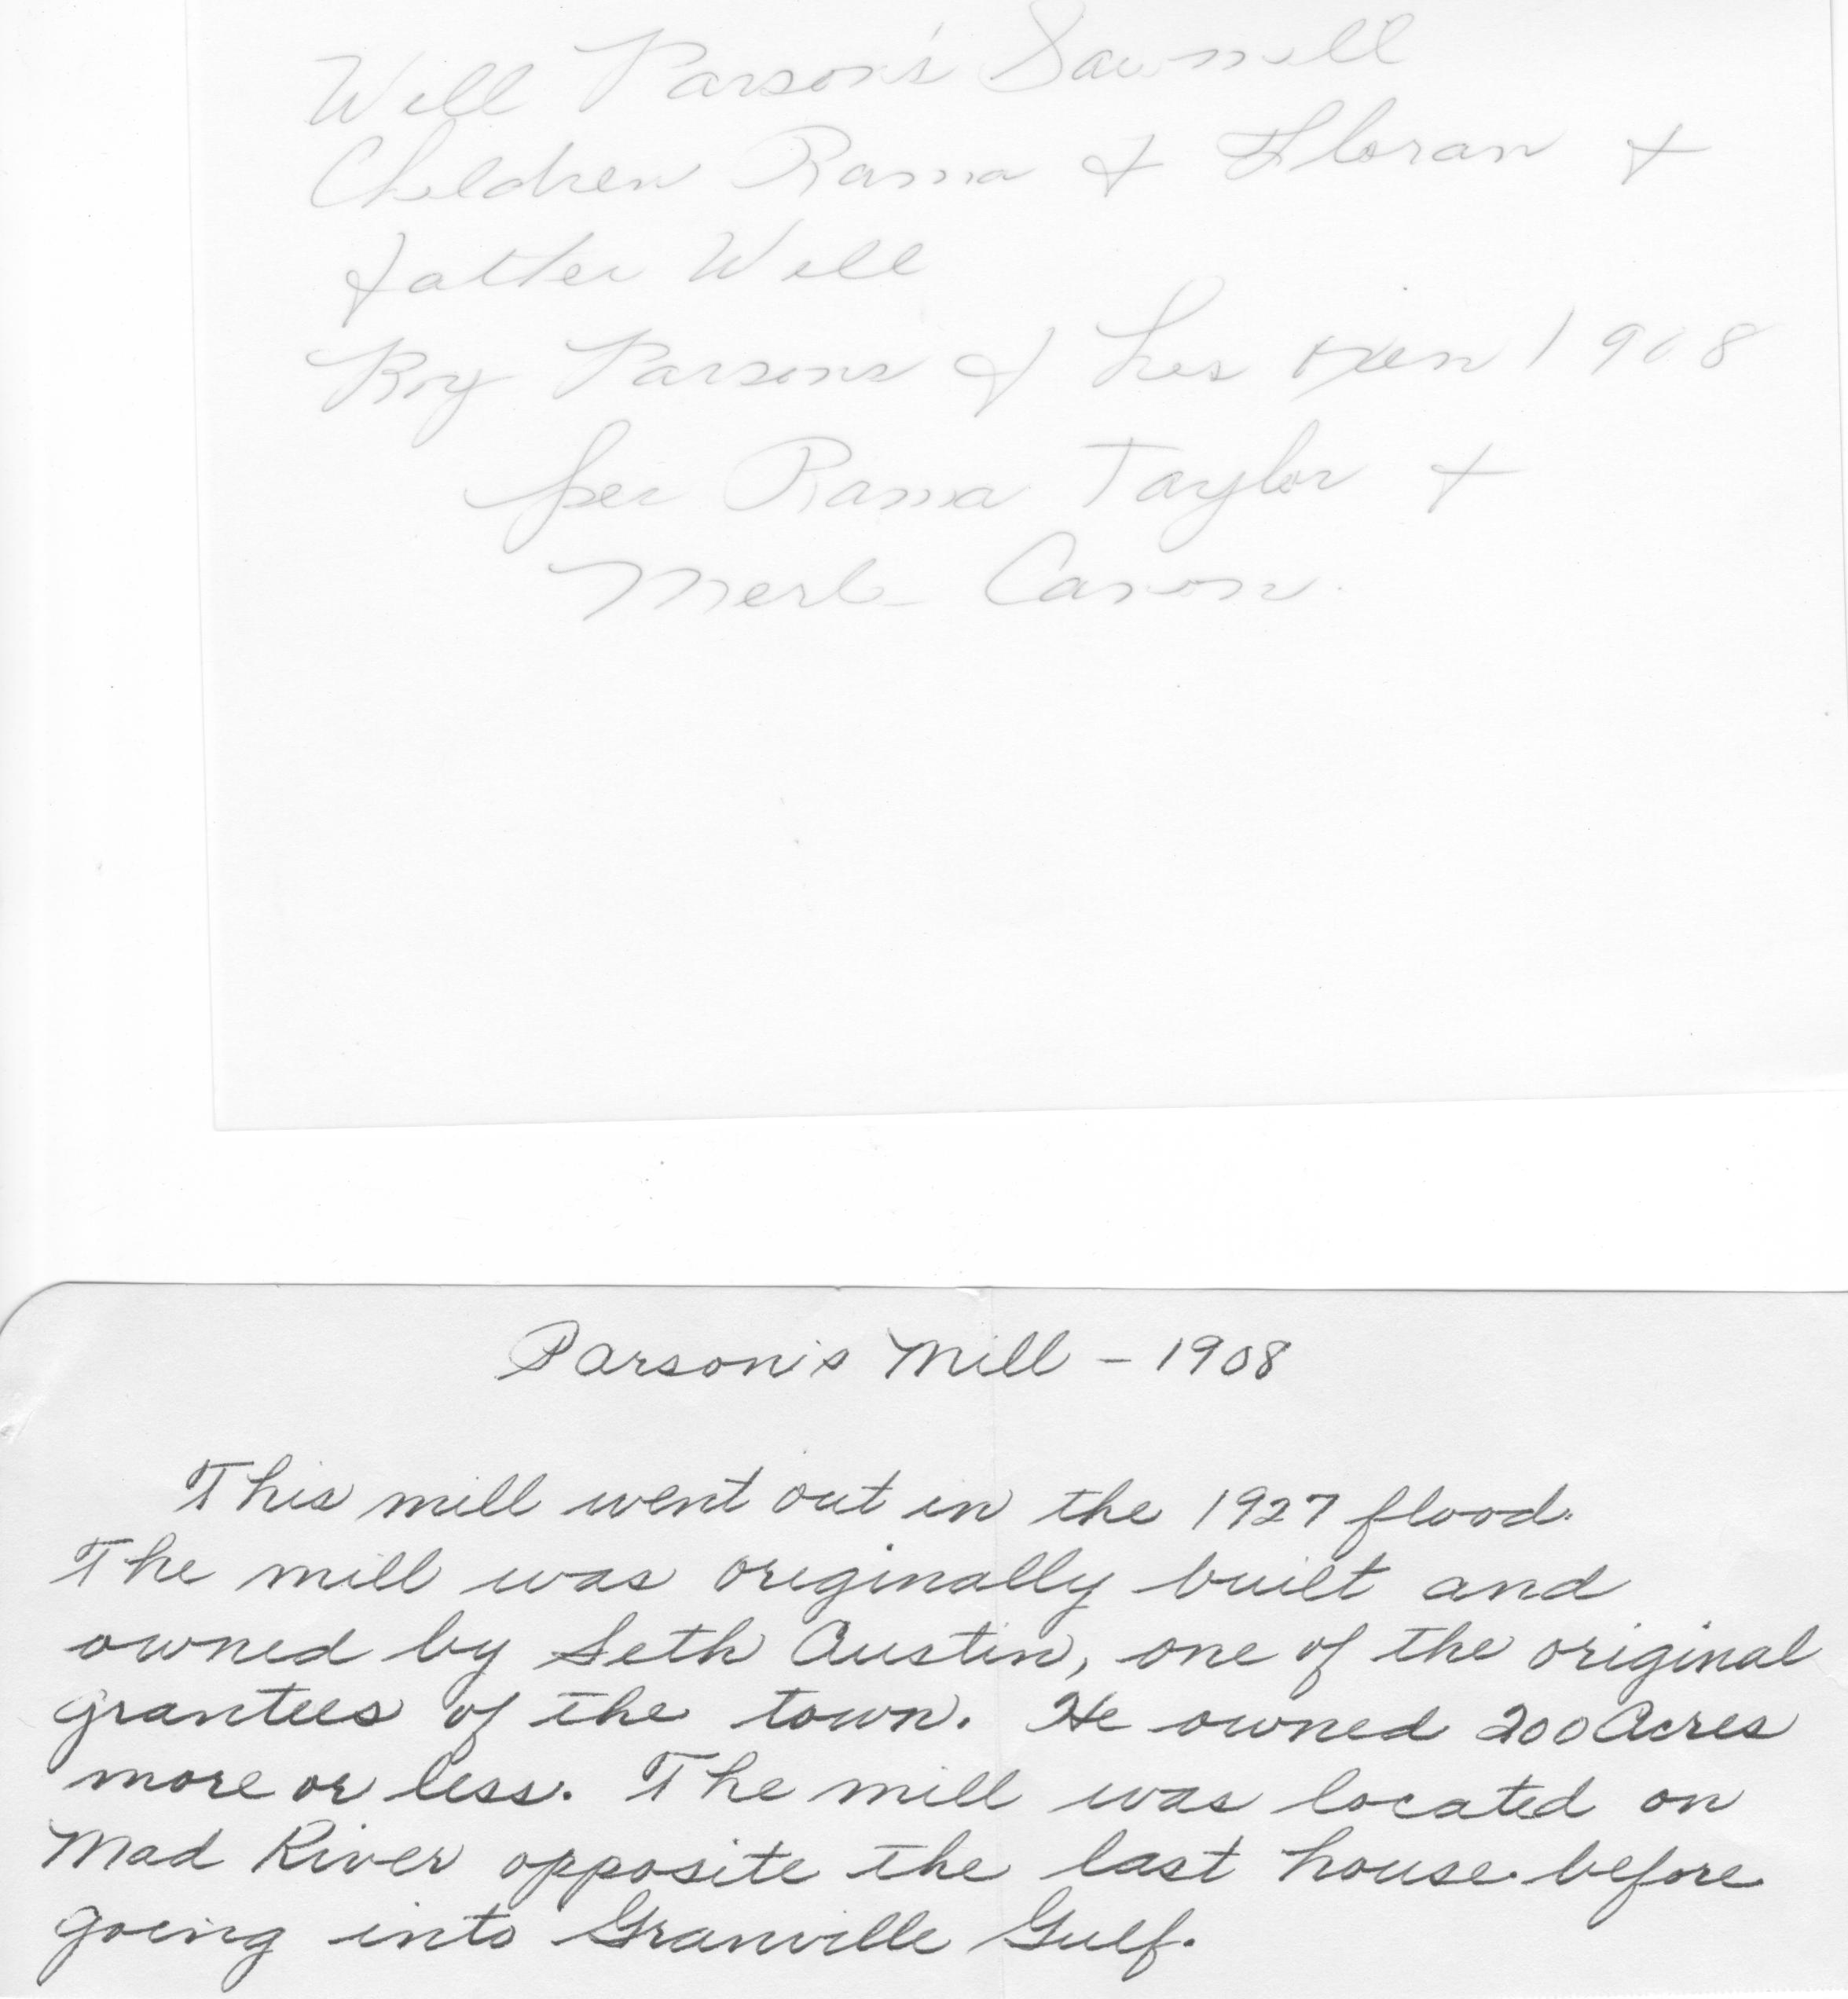 Will Parson's Sawmill
Children Rama & Floran &
father Will
Roy Parsons & his oxen 1908
per Rama Taylor &
Merle Caron.
Parson's Mill – 1908
This mill went out in the 1927 flood.
The mill was originally built and
owned by Seth Austin, one of the original
grantees of the town. He owned 200 Acres
more or less. The mill was located on
Mad River opposite the last house before
going into Granville Gulf.